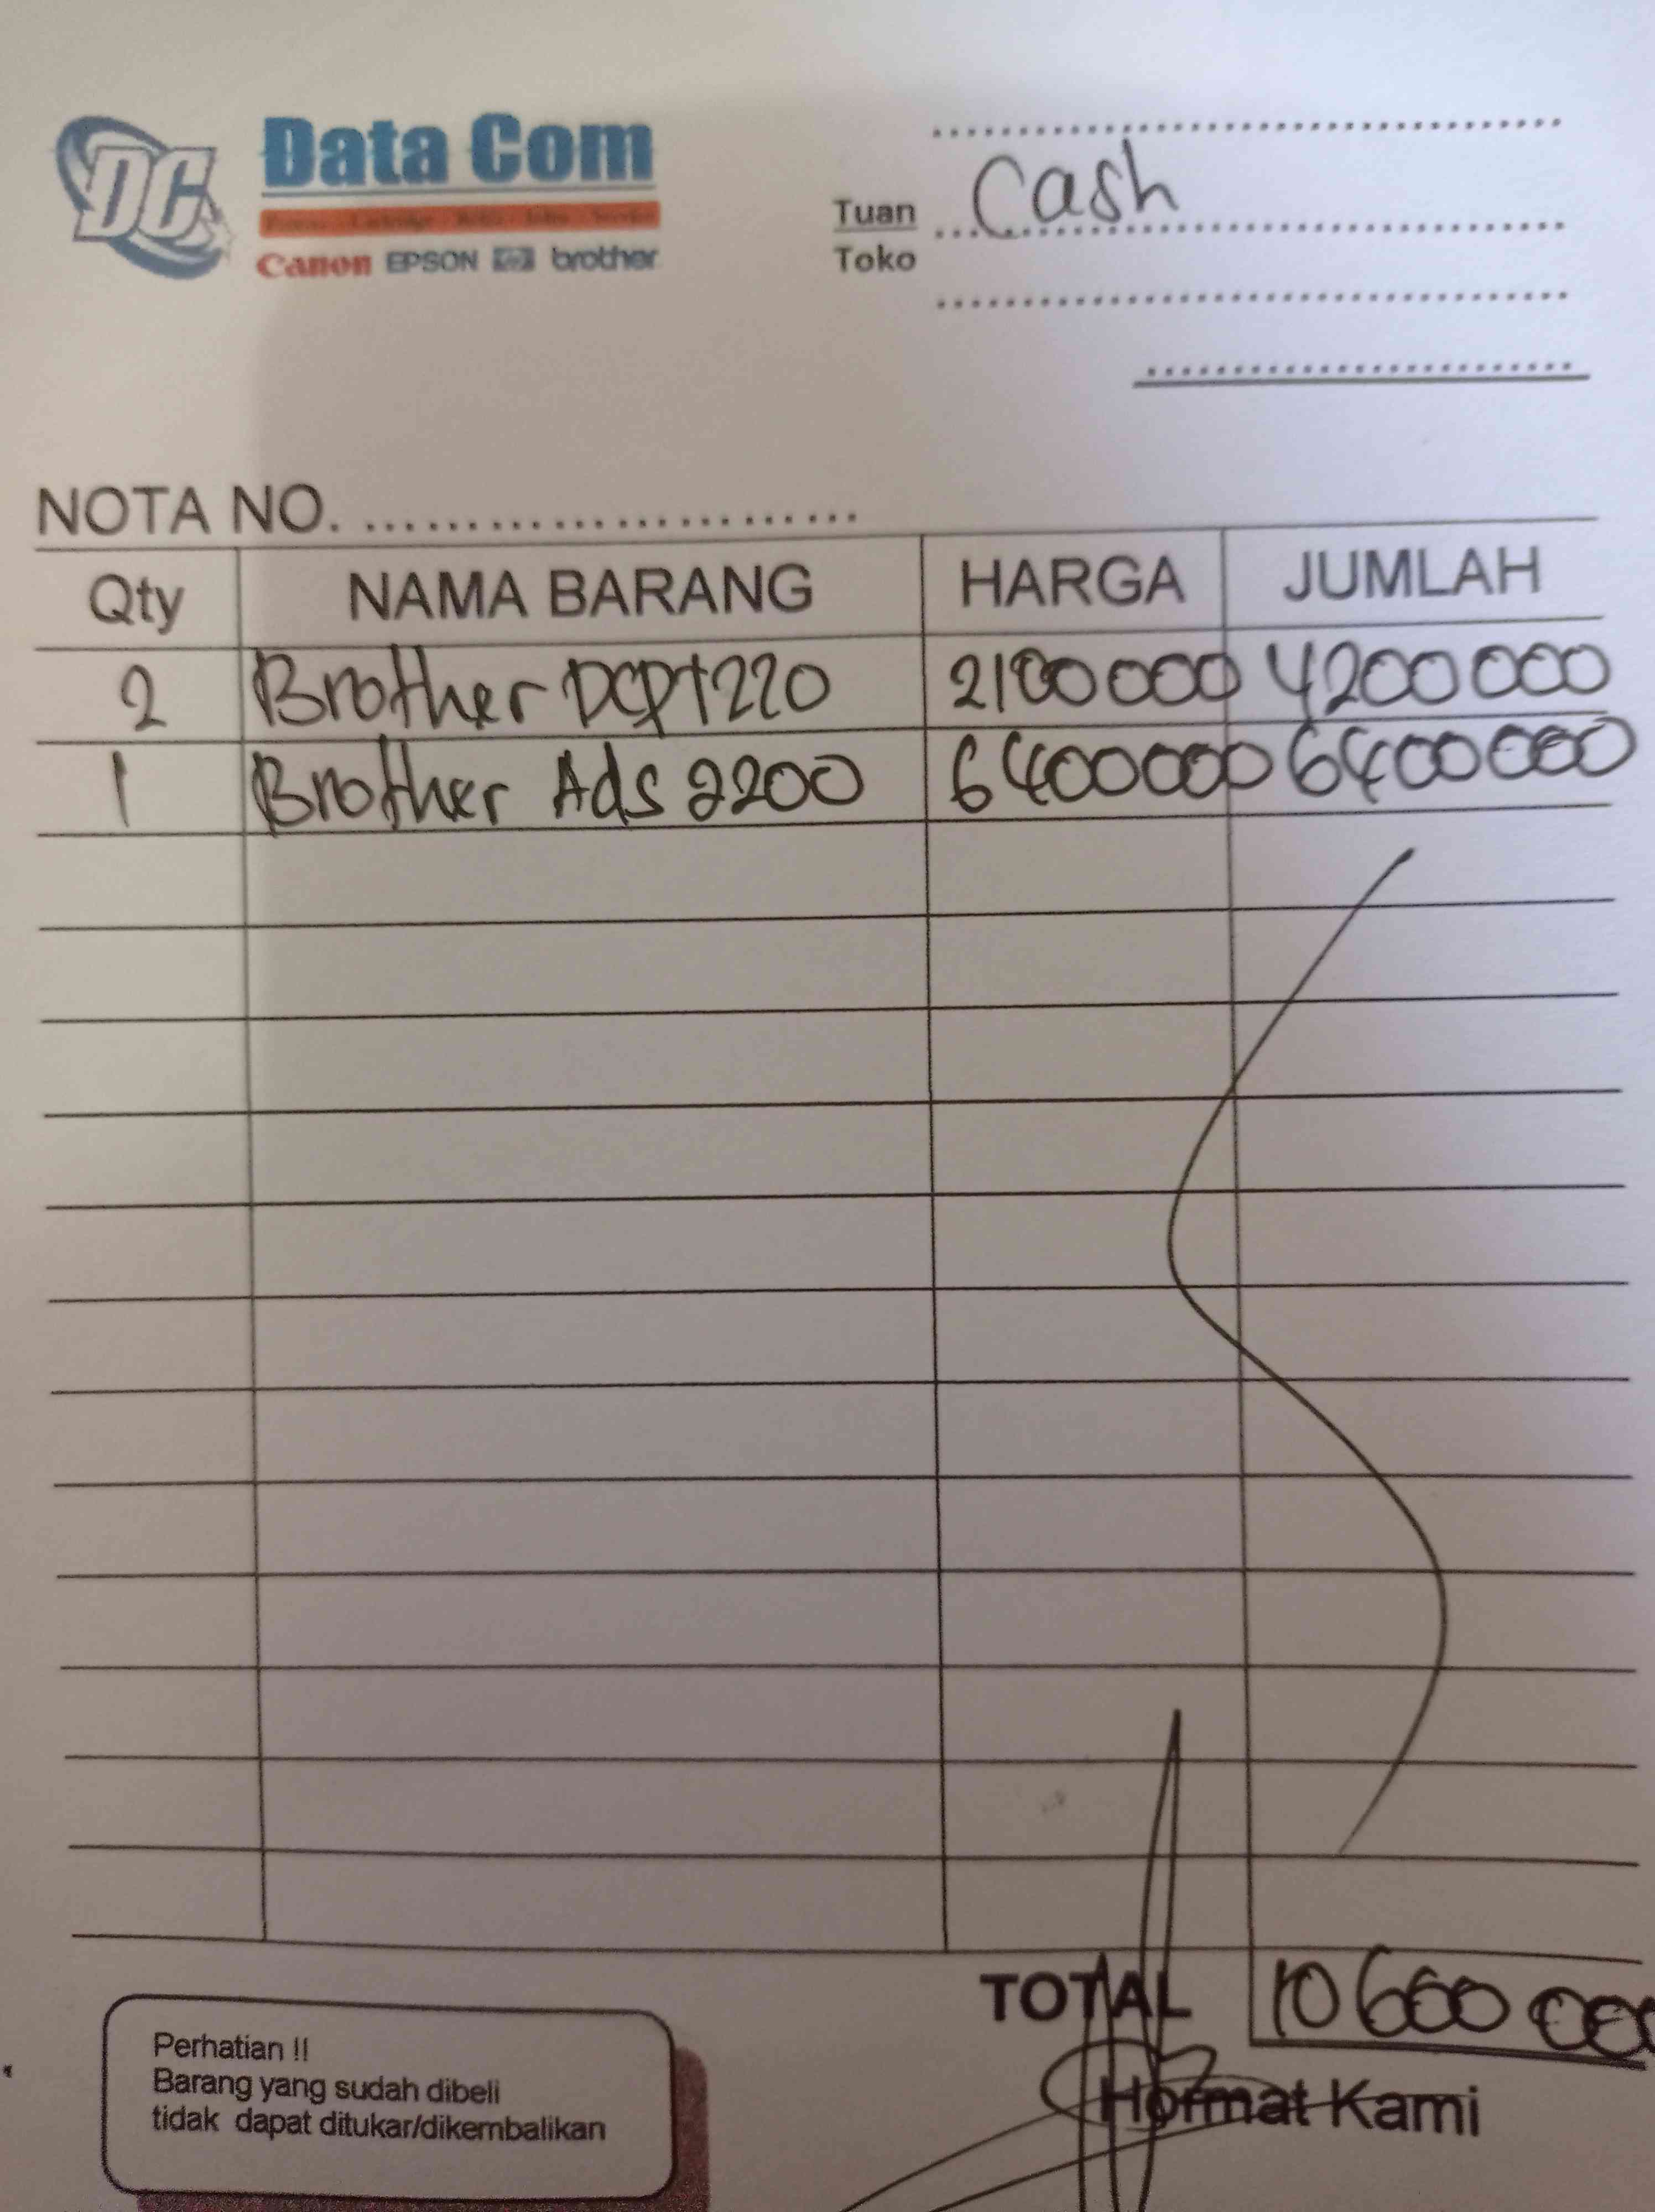 DC
Data Com
Canon EPSON hp brother
Tuan Cash
Toko
NOTA NO.
Qty NAMA BARANG HARGA JUMLAH
2 Brother DCPT220 2100 000 4200 000
1 Brother Ads 2200 6400000 6400 000
TOTAL 10 600 000
Hormat Kami
Perhatian !!
Barang yang sudah dibeli
tidak dapat ditukar/dikembalikan